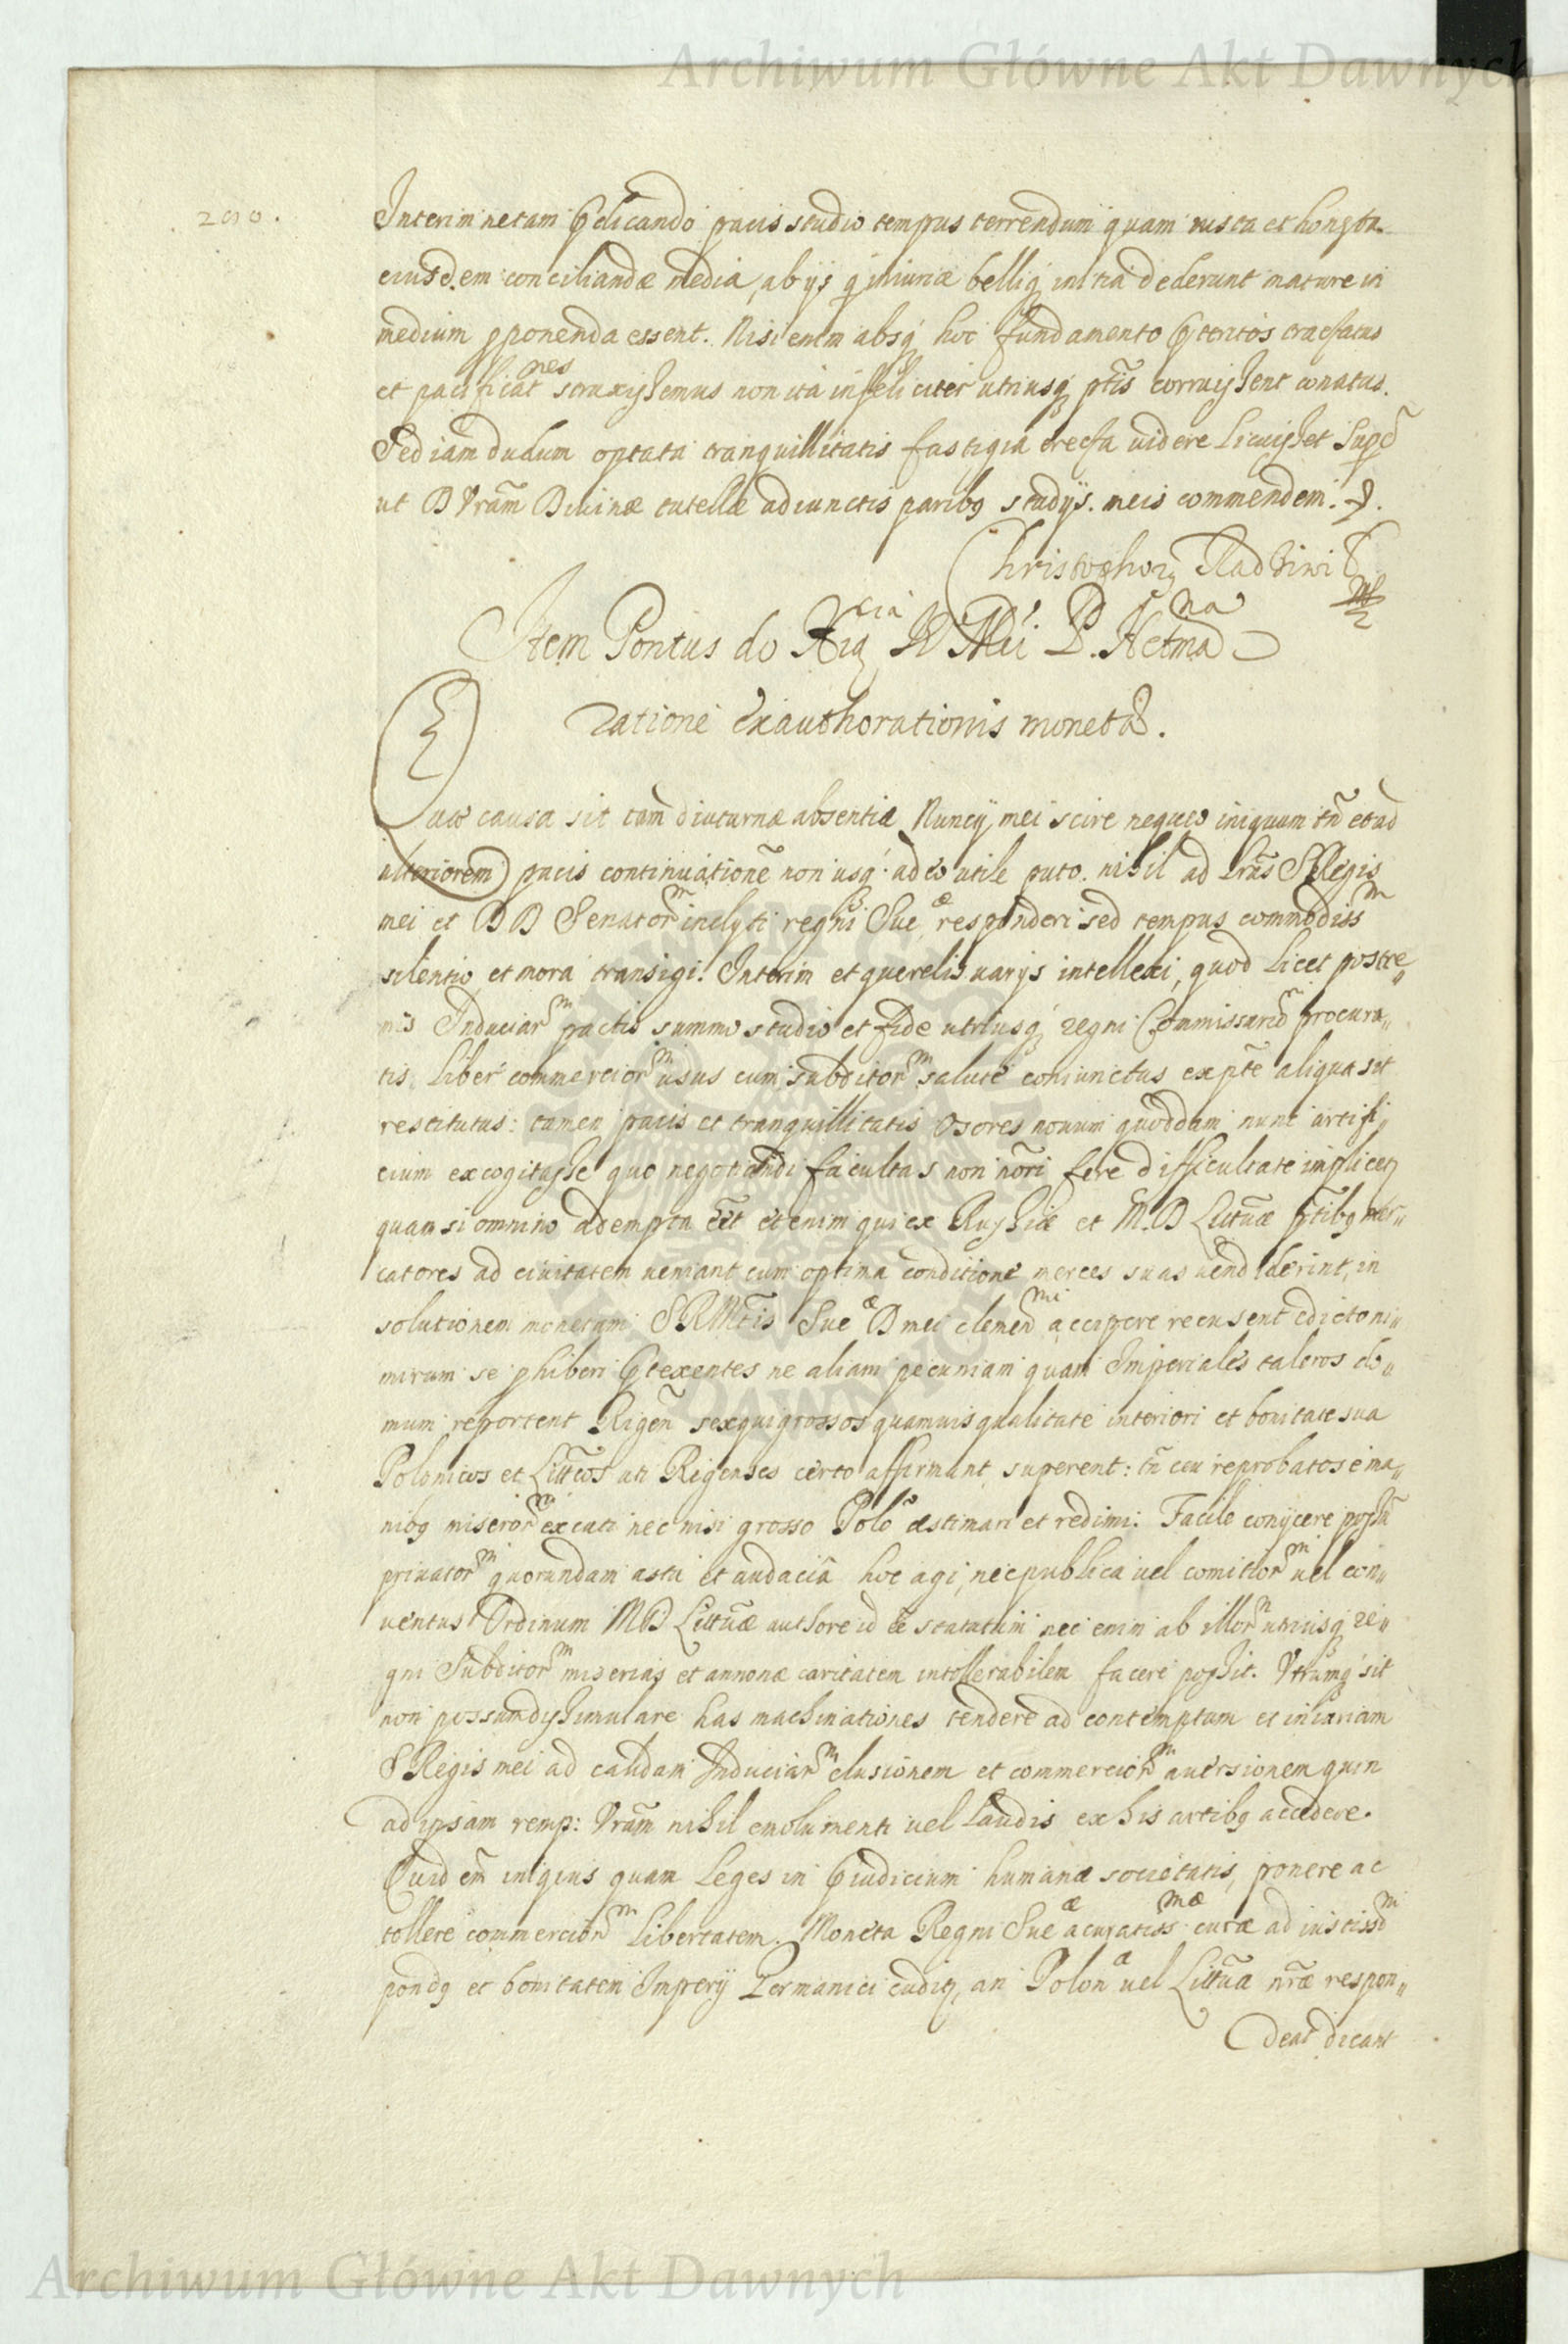 Archiwum Główne Akt Dawnych
290.
Interim ne tam p̃dicando pacis studio tempus terrendum quam iusta et honesta
eiusdem conciliandæ media, ab ijs q̃ iniuriæ belliq; initia dederunt mature in
medium p̱ponenda essent. Nisi enim absq; hoc fundamento p̃teritos tractatus
et pacificat^nes struxissemus non ita infeliciter utriusq; p̃tis corruissent conatus.
Sed iam dudum optata tranquillitatis fastigia erecta uidere licuisset Sup̃
ut D Vrãm Diuinæ tutellæ adiunctis parib9 studijs meis commendem.
Christophor9 Radziwił
Item Pontus do Xią^cia JE Mci P. Hetma^na
ratione exauthorationis monetæ.
Quæ causa sit tam diuturnæ absentiæ Nuncij mei scire nequeo iniquum tñ et ad
ulteriorem pacis continuationẽ non usq; adeo utile puto. nihil ad Lrãs S Regis
mei et DD Senator^m inclyti regni Sue^æ responderi sed tempus commodiss^m
silentio et mora transigi. Interim et querelis varijs intellexi, quod licet postre„
mis Induciar^m pactis summo studio et fide utriusq; regni Commissarior^m procura„
tis, Liber commercior^m usus cum subditor^m salute coniunctus ex p̃te aliqua sit
restitutus: tamen pacis et tranquillitatis osores nouum quoddam nunc artifi„
cium excogitasse quo negotiandi facultas non mõri fere difficultate implicet9
quam si omnino adempta eẽt etenim qui ex Russiæ et M.D Littũæ p̃tib9 mer„
catores ad ciuitatem ueniant cum optima conditione merces suas uendiderint, in
solutionem monetam SRMtis Sue^æ D mei clemen^mi accipere recusent edicto ni„
mirum se p̱hiberi p̃texentes ne aliam pecuniam quam Imperiales taleros do„
mum reportent Rigeñ sexquigrossos quamuis qualitate interiori et bonitate sua
Polonicos et Littũcos uti Rigenses certo affirmant superent: tñ ceu reprobatos e ma„
nib9 miseror^m excuti nec nisi grosso Polõ æstimari et redimi. Facile conijcere possũ
priuator^m quorundam astu et audacia hoc agi, nec publica uel comitior^m uel con„
uentus Ordinum MD Littũæ authore id eẽ statutum nec enim ab illor^m utriusq; re„
gni Subditor^m miserias et annonæ caritatem intollerabilem facere possit. Vtrumq; sit
non possum dissimulare has machinationes tendere ad contemptum et iniuriam
S Regis mei ad calidam Induciar^m elusionem et commercior^m auersionem quin
ad ipsam remp: Vrãm nihil emolumenti uel laudis ex his artib9 accedere.
Quid em̃ iniquius quam Leges in p̃iudicium humanæ societatis, ponere ac
tollere commercior^m Libertatem. Moneta Regni Sue^æ acuratiss^mæ curæ ad iustiss^m
pond9 et bonitatem Imperij Germanici cudit9, an Polon^a uel Littũa nr̃æ respon„
deat dicant
Archiwum Główne Akt Dawnych